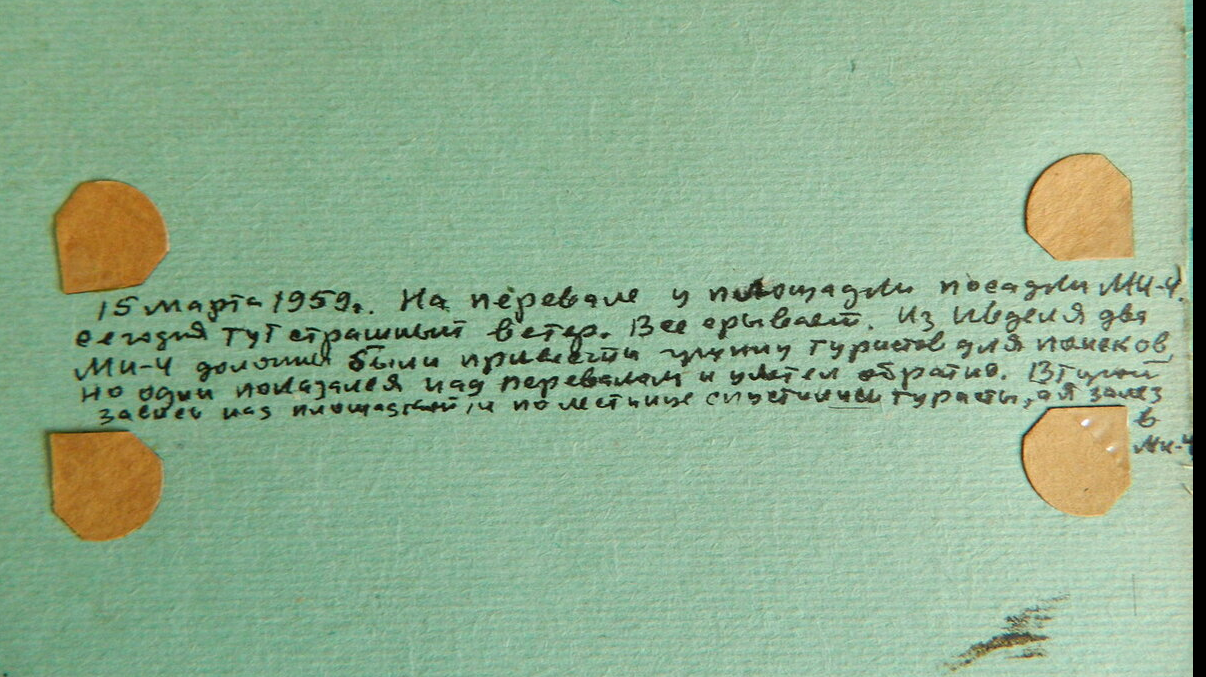 15 марта 1959г. На перевале у площадки посадки Ми-4.
Сегодня тут страшный ветер. Все срывает. Из Ивделя два
Ми-4 должны были привезти группу туристов для поисков,
но один показался над перевалом и улетел обратно. Второй
завис над площадкой и по лестнице спустились туристы, а я залез
в
Ми-4